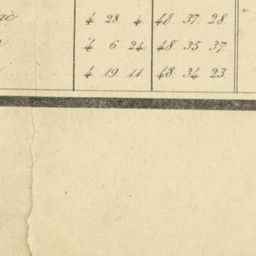 4 28 4 48 37 28
4 6 24 48 35 37
4 19 11 48 34 23